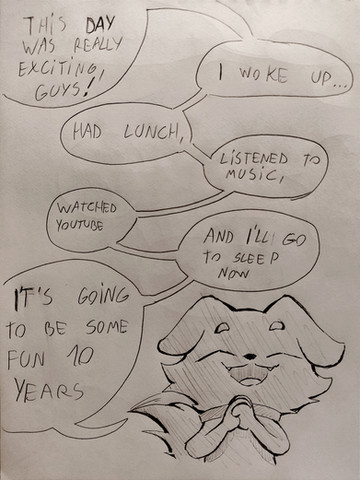 THIS DAY
WAS REALLY
EXCITING,
GUYS!
I WOKE UP...
HAD LUNCH,
LISTENED TO
MUSIC,
WATCHED
YOUTUBE
AND I'LL GO
TO SLEEP
NOW
IT'S GOING
TO BE SOME
FUN 10
YEARS